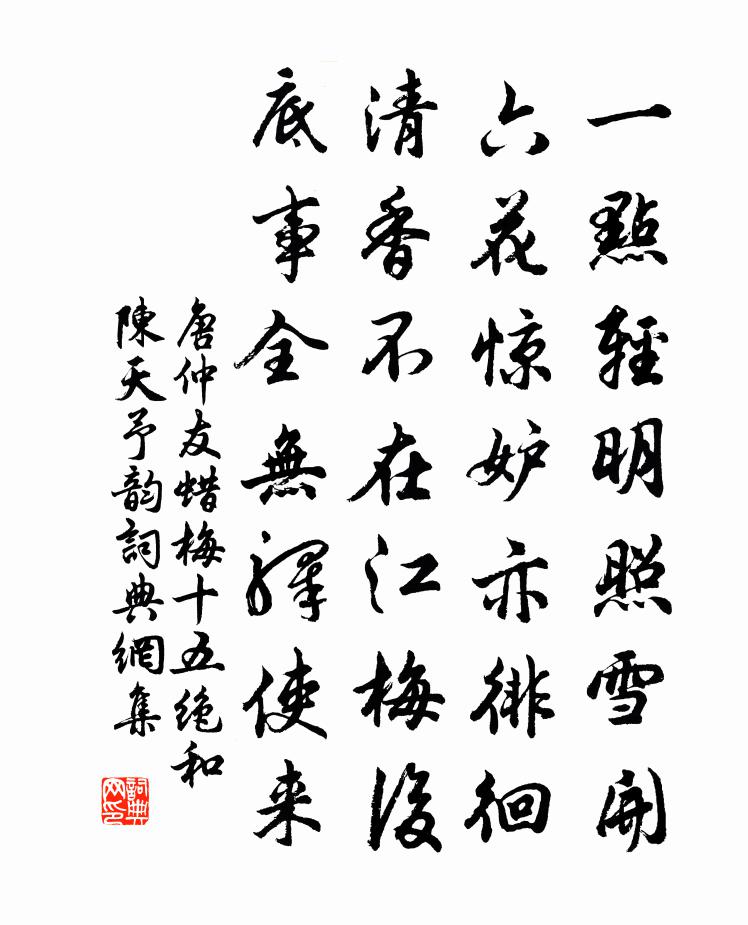 一點輕明照雪開
六花惊妒亦徘徊
清香不在江梅後
底事全無驛使来
唐仲友蜡梅十五绝和
陳天予韵詞典網集
詞典
网印